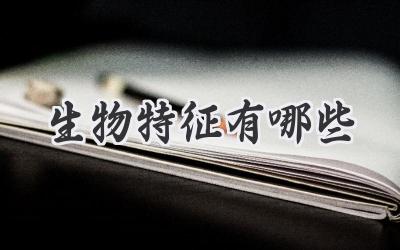 生物特征有哪些